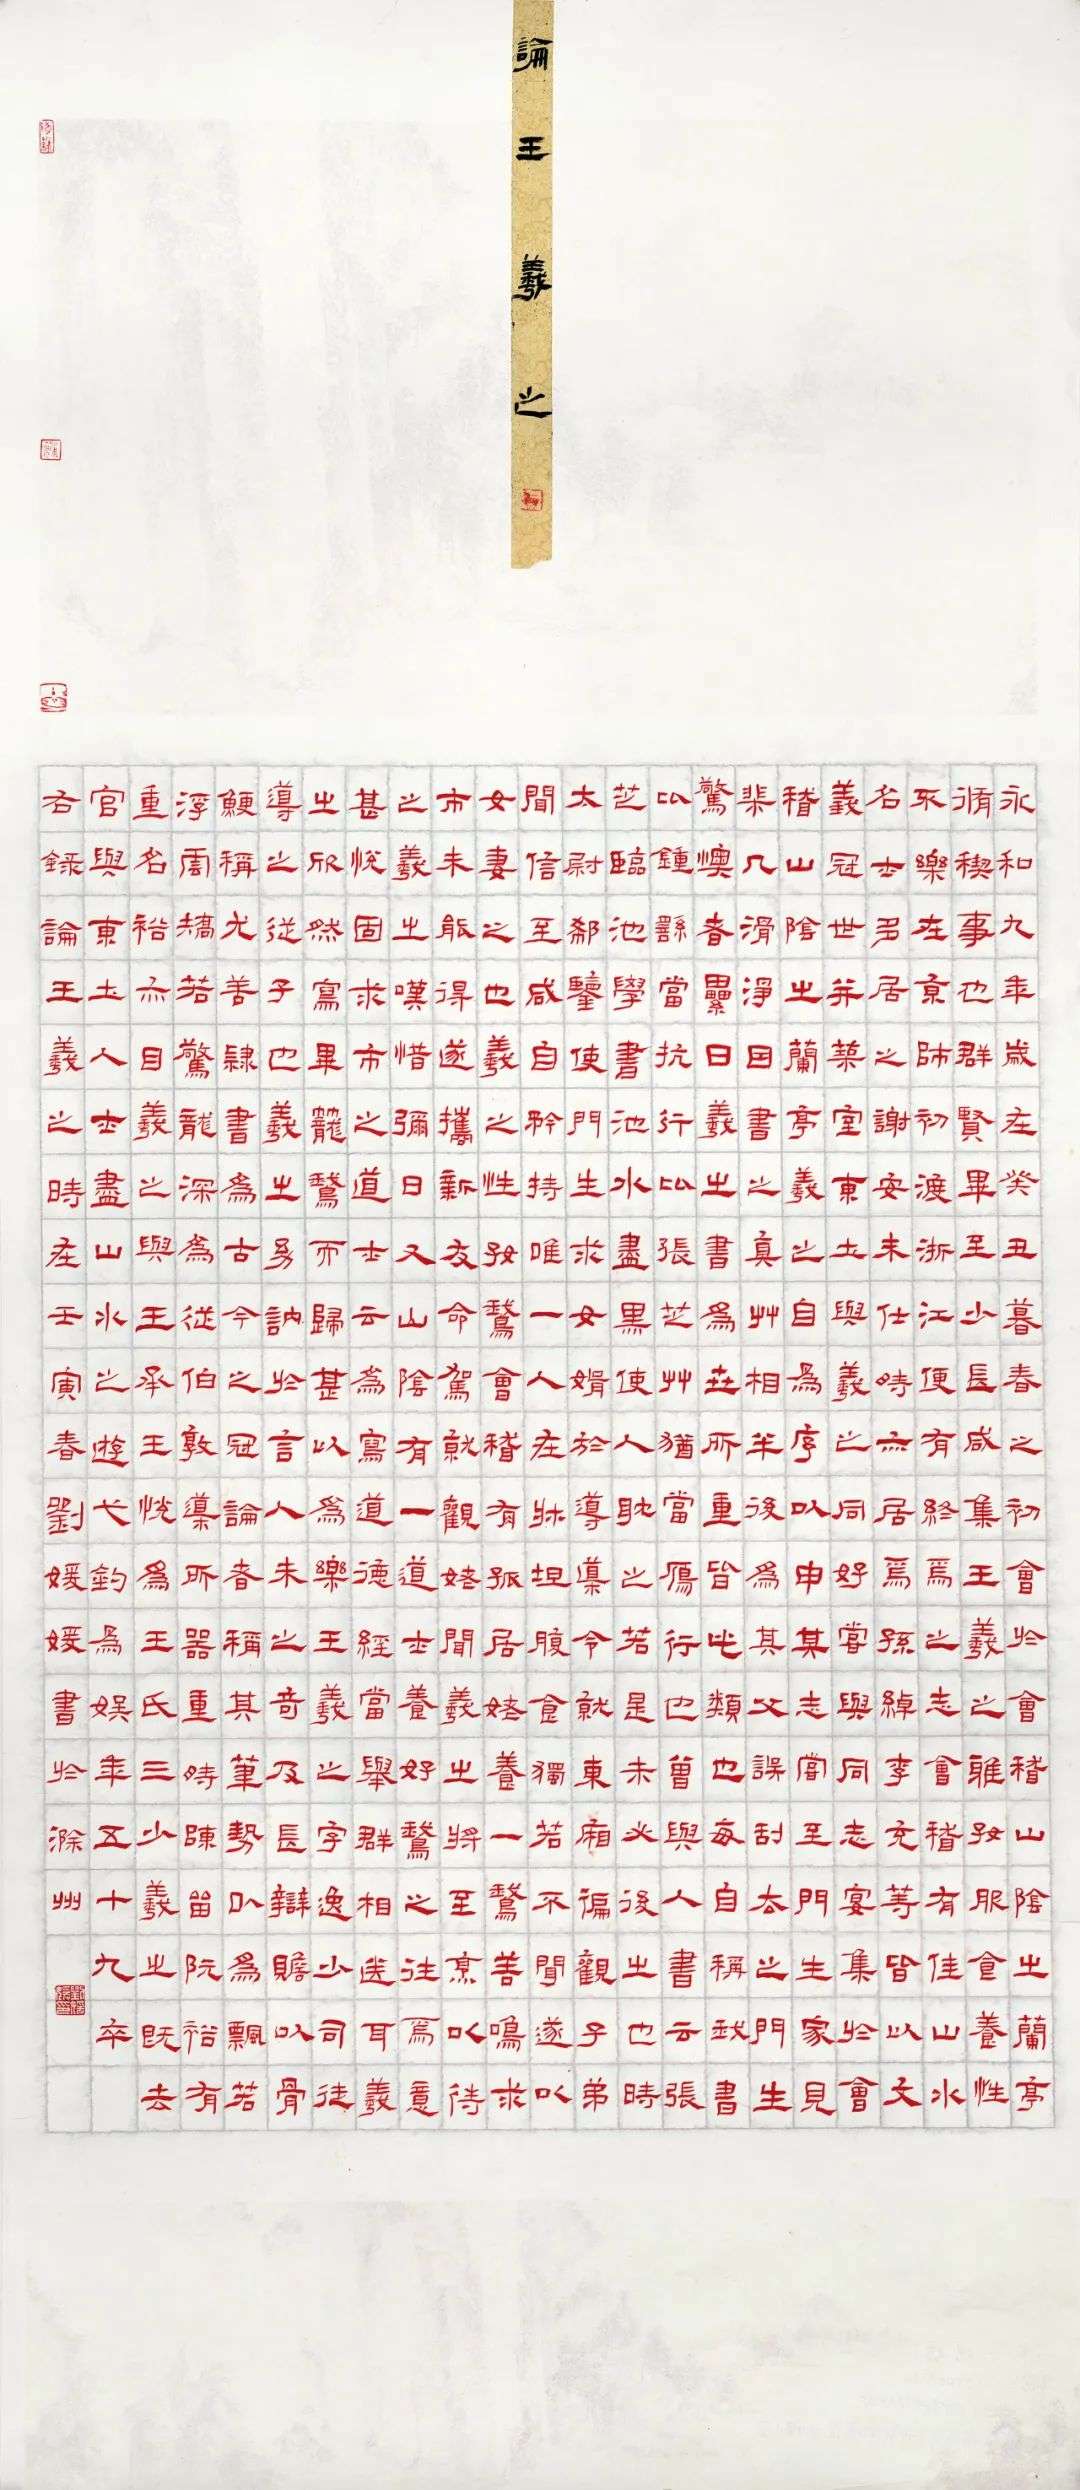 論王羲之
永和九年歲在癸丑暮春之初會於會稽山陰之蘭亭
脩稧事也群賢畢至少長咸集王羲之雅好服食養性
不樂在京師初渡浙江便有終焉之志會稽有佳山水
名士多居之謝安未仕時亦居焉孫綽李充等皆以文
義冠世并築室東土與羲之同好嘗與同志宴集於會
稽山陰之蘭亭羲之自為序以申其志嘗至門生家見
棐几滑淨因書之真艸相半後為其父誤刮去之門生
驚懊者累日羲之書為世所重皆此類也每自稱我書
比鍾繇當抗行比張芝艸猶當雁行也曾與人書云張
芝臨池學書池水盡黑使人耽之若是未必後之也時
太尉郗鑒使門生求女婿於導導令就東廂徧觀子弟
聞信至咸自矜持唯一人在牀坦腹食獨若不聞遂以
女妻之也羲之性好鵝會稽有孤居姥養一鵝善鳴求
市未能得遂攜新友命駕就觀姥聞羲之將至烹以待
之羲之嘆惜彌日又山陰有一道士養好鵝之往焉意
甚悅固求市之道士云為寫道德經當舉群相送耳羲
之欣然寫畢籠鵝而歸甚以為樂王羲之字逸少司徒
導之從子也羲之幼訥於言人未之奇及長辯贍以骨
鯁稱尤善隸書為古今之冠論者稱其筆勢以為飄若
浮雲矯若驚龍深為從伯敦導所器重時陳留阮裕有
重名裕亦目羲之與王承王悅為王氏三少羲之既去
官與東土人士盡山水之遊弋釣為娛年五十九卒
右錄論王羲之時在壬寅春劉媛媛書於滁州